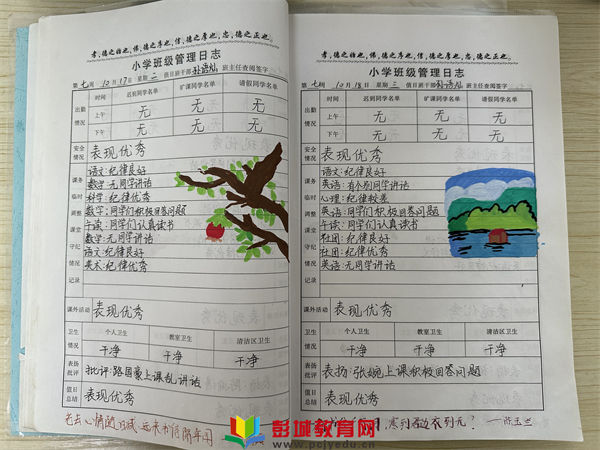 孝，德之始也，悌，德之序也，信，德之厚也，忠，德之正也。
小学班级管理日志
第七周 10月17日 星期二 值日班干部 班主任查阅签字
时间 迟到同学名单 旷课同学名单 请假同学名单
出勤情况
上午 无 无 无
下午 无 无 无
安全情况 表现优秀
课务临时调整课堂守纪情况记录
语文:纪律良好
数学:无同学讲话
科学:纪律优秀
数学:同学们积极回答问题
午读:同学们认真读书
数学:无同学讲话
语文:纪律良好
美术:纪律优秀
课外活动 表现优秀
卫生情况
个人卫生 教室卫生 清洁区卫生
干净 干净 干净
表扬批评 批评:路国豪上课乱讲话
值日总结 表现优秀
孝，德之始也，悌，德之序也，信，德之厚也，忠，德之正也。
小学班级管理日志
第七周 10月18日 星期三 值日班干部 班主任查阅签字
时间 迟到同学名单 旷课同学名单 请假同学名单
出勤情况
上午 无 无 无
下午 无 无 无
安全情况 表现优秀
课务临时调整课堂守纪情况记录
语文:纪律良好
英语:有个别同学讲话
心理:纪律较差
英语:同学们积极回答问题
午读:同学们认真读书
社团:纪律良好
社团:纪律优秀
英语:无同学讲话
课外活动 表现优秀
卫生情况
个人卫生 教室卫生 清洁区卫生
干净 干净 干净
表扬批评 表扬:张婉上课积极回答问题
值日总结 表现优秀
彭城教育网
www.pcjyedu.cn